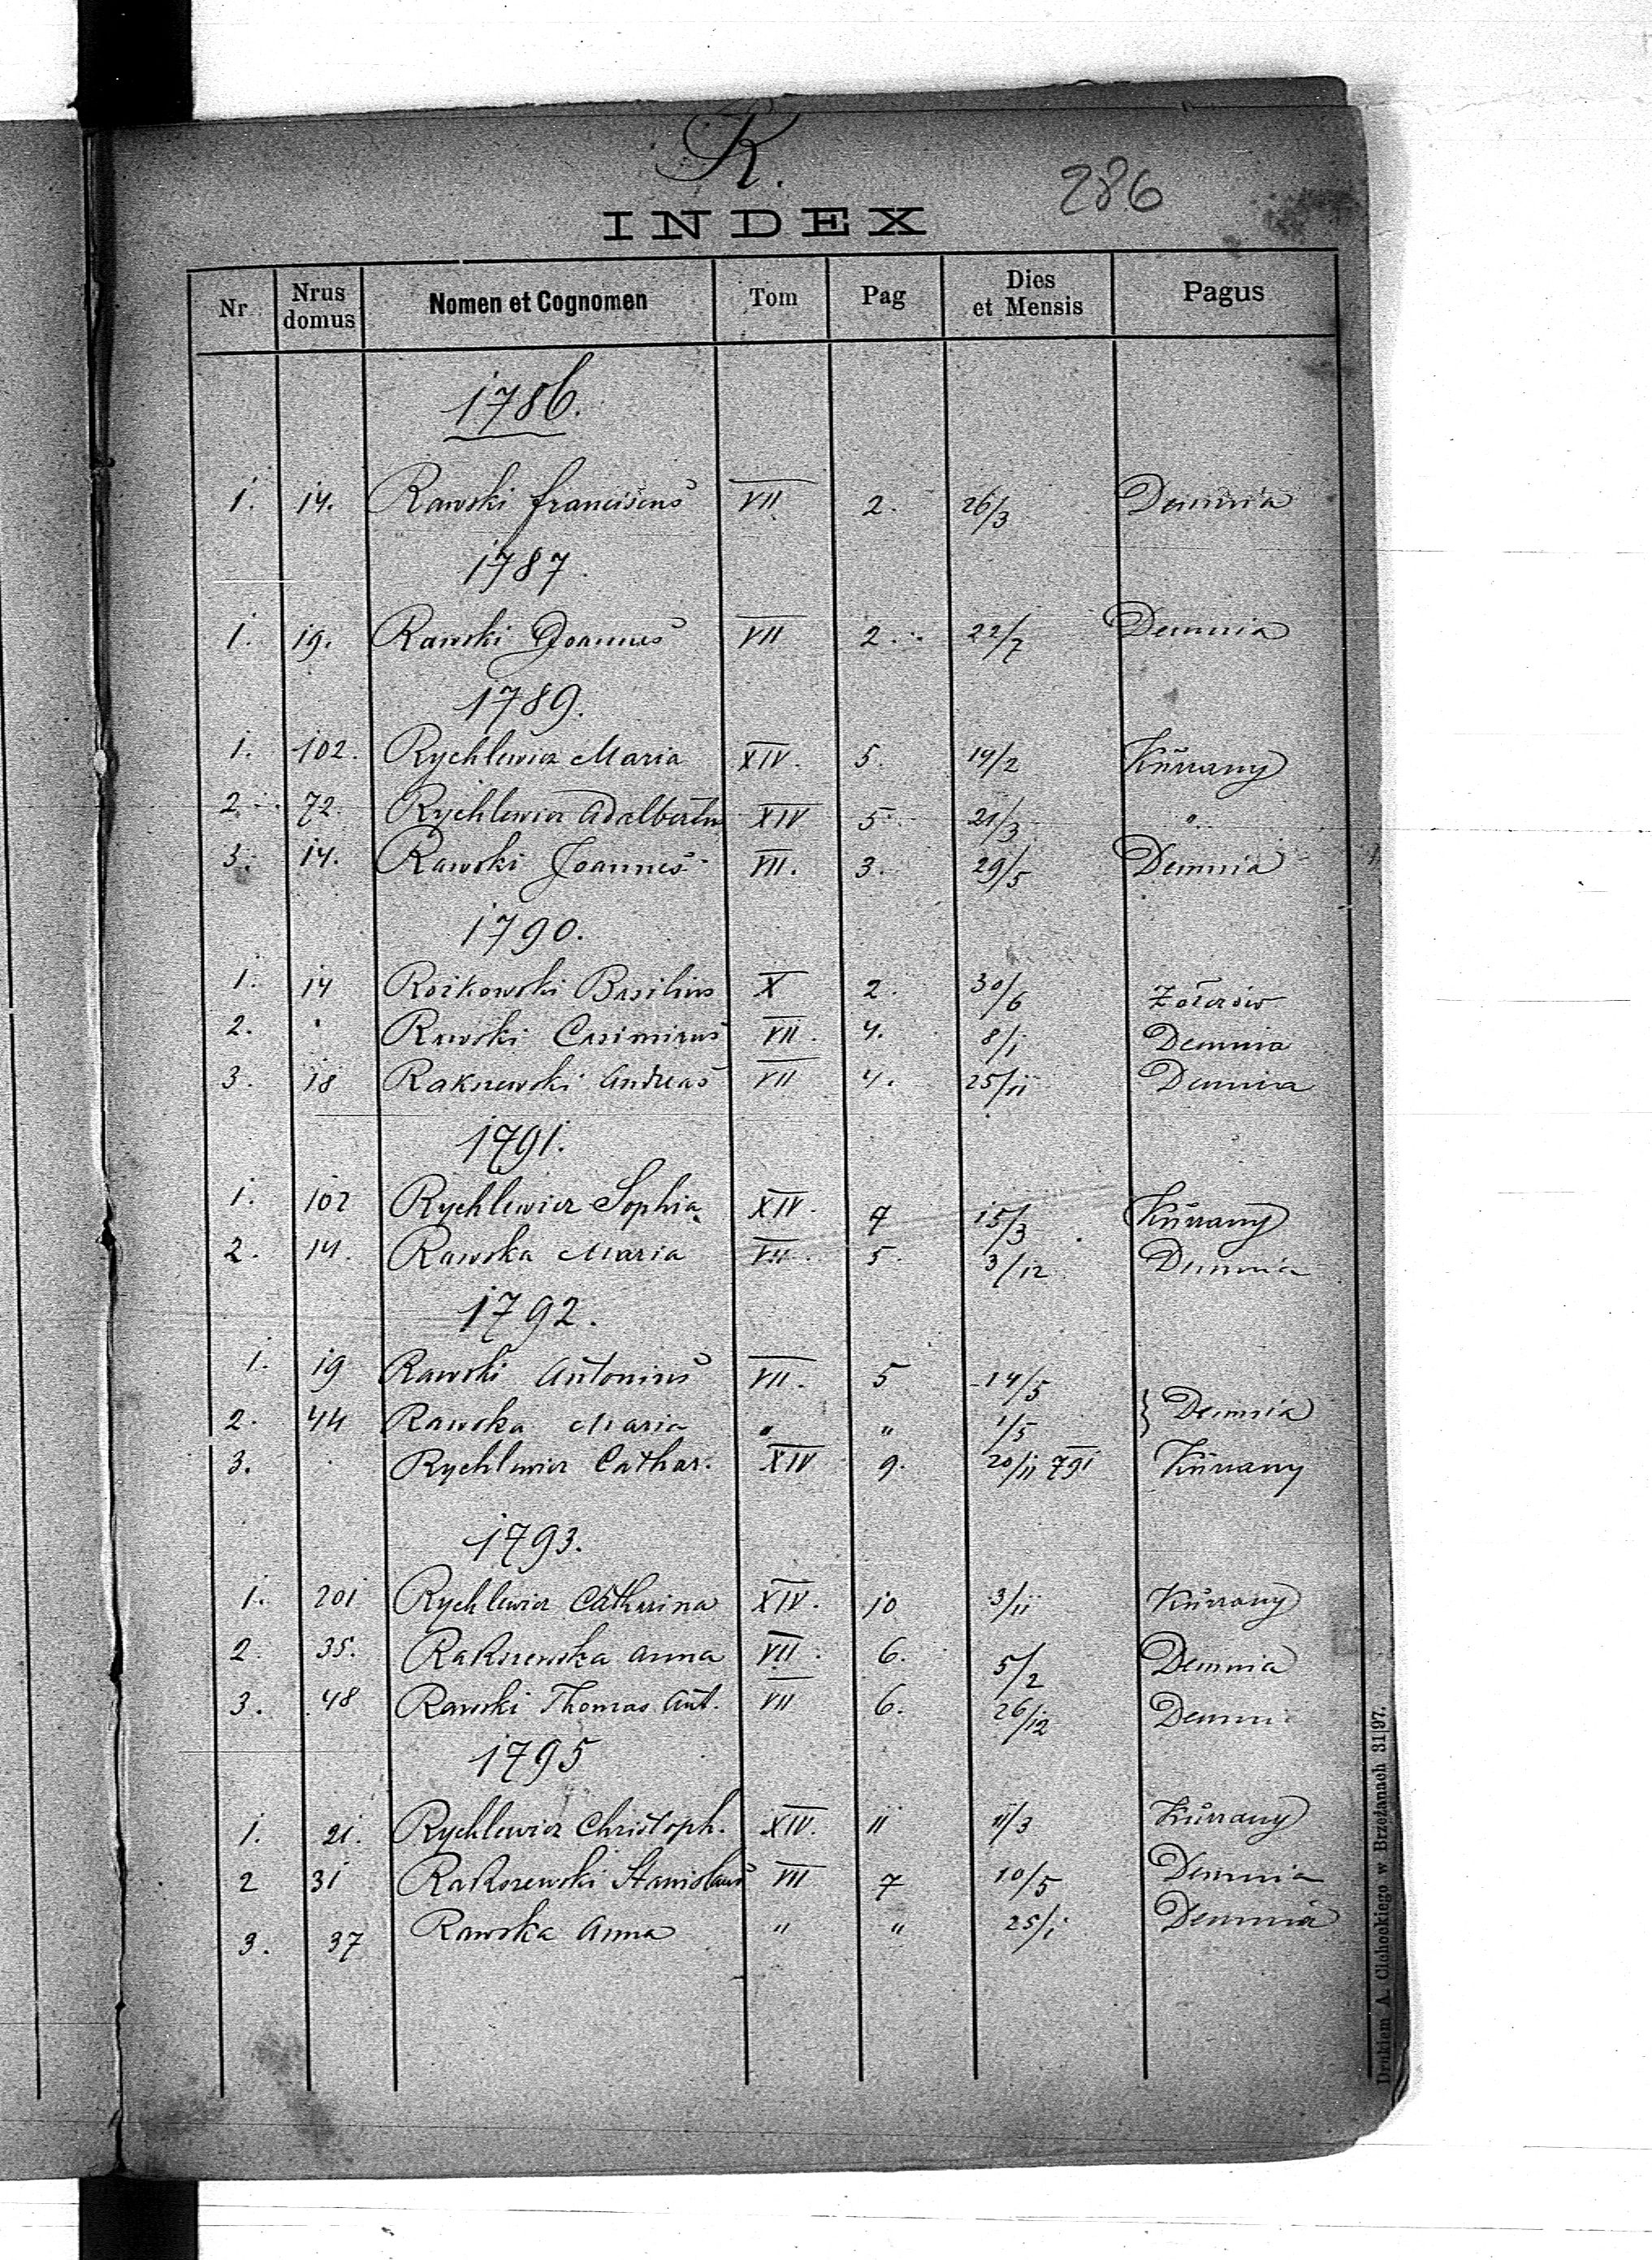 R.
286
INDEX
Nr Nrus domus Nomen et Cognomen Tom Pag Dies et Mensis Pagus
1786.
1. 14. Rawski Franciscus VII 2. 26/3 Demnia
1787.
1. 19. Rawski Joannes VII 2. 22/7 Demnia
1789.
1. 102. Rychlewicz Maria XIV. 5. 14/2 Kurzany
2. 72. Rychlewicz Adalbertus XIV 5. 21/3 "
3. 14. Rawski Joannes VII. 3. 29/5 Demnia
1790.
1. 14 Basilius X 2. 30/6
2. " Rawski Casimirus VII. 4. 8/1 Demnia
3. 18 Rakszewski Andreas VII 4. 25/11 Demnia
1791.
1. 102 Rychlewicz Sophia XIV. 7 15/3 Kurzany
2. 14. Rawska Maria VII. 5. 3/12 Demnia
1792.
1. 19 Rawski Antonius VII. 5 14/5
2. 44 Rawska Maria " " 1/5 } Demnia
3. Rychlewicz Cathar. XIV 9. 20/11 791 Kurzany
1793.
1. 201 Rychlewicz Catharina XIV. 10 3/11 Kurzany
2. 35. Rakszewska Anna VII. 6. 5/2 Demnia
3. 48 Rawski Thomas Ant. VII 6. 26/12 Demnia
1795
1. 21. Rychlewicz Christoph. XIV. 11 11/3 Kurzany
2 31 Rakszewski Stanislaus VII 7 10/5 Demnia
3. 37 Rawska Anna " " 25/1 Demnia
Drukiem A. Cichockiego w Brzeżanach 31|97.